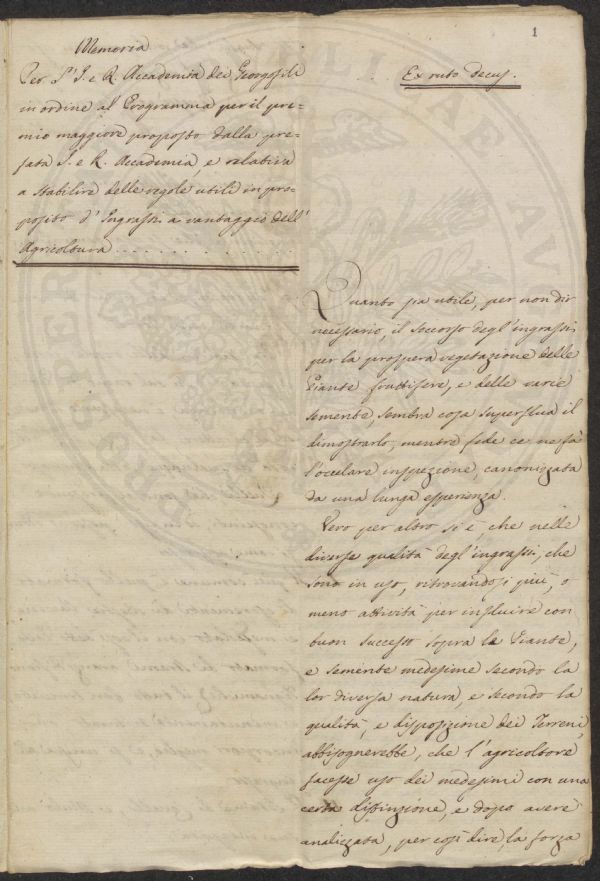 1
Memoria
Per l'I. e R. Accademia dei Georgofili
in ordine al Programma per il pre=
mio maggiore proposto dalla pre=
fata I. e R. Accademia, e relativa
a stabilire delle regole utili in pro=
posito d'Ingrassi a vantaggio dell'
Agricoltura . . . . . . . . . . . .
Ex ruto decus.
Quanto sia utile, per non dir
necessario, il soccorso degl'ingrassi
per la prospera vegetazione delle
Piante fruttifere, e delle varie
semente, sembra cosa superflua il
dimostrarlo, mentre fede ce ne fà
l'oculare inspezzione, canonizzata
da una lunga esperienza.
Vero per altro si è, che nelle
diverse qualità degl'ingrassi, che
sono in uso, ritrovandosi più, o
meno attività per influire con
buon successo sopra le Piante,
e semente medesime secondo la
lor diversa natura, e secondo la
qualità, e disposizione dei Terreni,
abbisognerebbe, che l'agricoltore
facesse uso dei medesimi con una
certa distinzione, e dopo avere
analizzata, per così dire, la forza